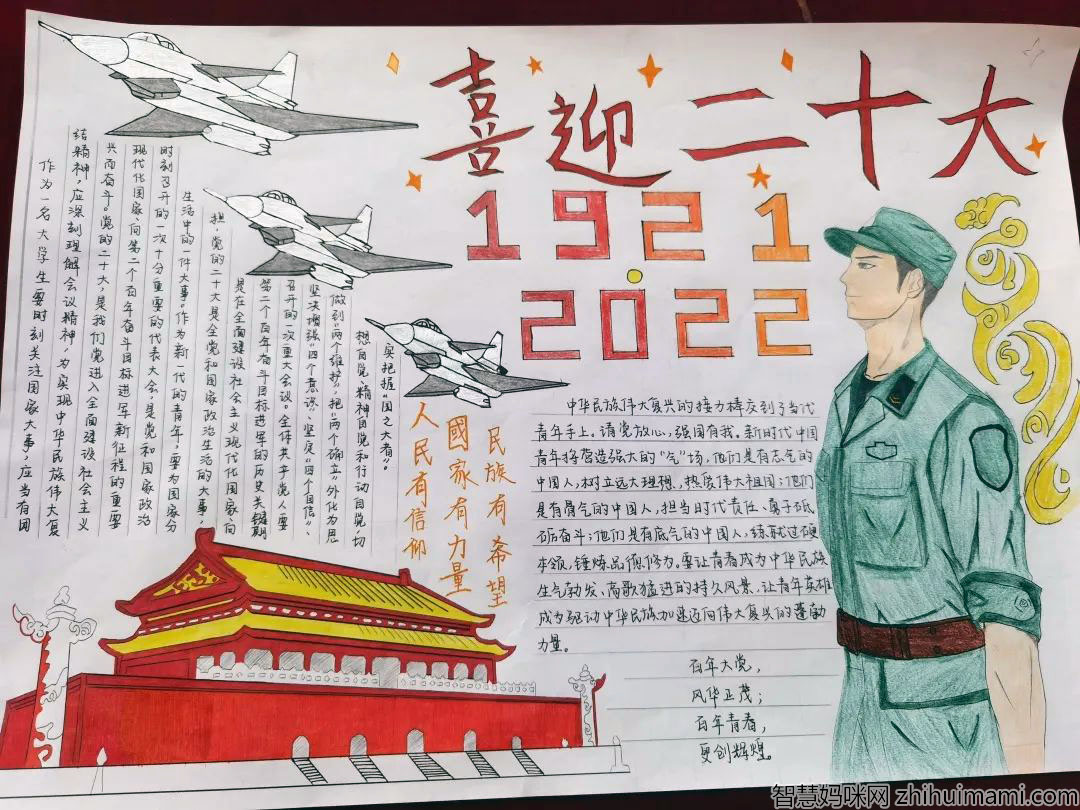 喜迎二十大
1921
2022
作为一名大学生要时刻关注国家大事,应当有团
结精神,应深刻理解会议精神,为实现中华民族伟大复
兴而奋斗。党的二十大,是我们党进入全面建设社会主义
现代化国家、向第二个百年奋斗目标进军新征程的重要
时刻召开的一次十分重要的代表大会,是党和国家政治
生活中的一件大事。作为新一代的青年,要为国家分
担,党的二十大是全党和国家政治生活的大事,
是在全面建设社会主义现代化国家、向
第二个百年奋斗目标进军的历史关键期
召开的一次重大会议。全体共产党人要
坚决增强“四个意识”、坚定“四个自信”、
做到“两个维护”,把“两个确立”外化为思
想自觉、精神自觉和行动自觉,切
实把握“国之大者”。
人民有信仰
國家有力量
民族有希望
中华民族伟大复兴的接力棒交到了当代
青年手上。请党放心,强国有我。新时代中国
青年将营造强大的“气”场,他们是有志气的
中国人,树立远大理想,热爱伟大祖国;他们
是有骨气的中国人,担当时代责任、勇于砥
砺奋斗;他们是有底气的中国人,练就过硬
本领,锤炼品德修为。要让青春成为中华民族
生气勃发、高歌猛进的持久风景,让青年英雄
成为驱动中华民族加速迈向伟大复兴的蓬勃
力量。
百年大党,
风华正茂;
百年青春,
更创辉煌。
智慧妈咪网 zhihuimami.com